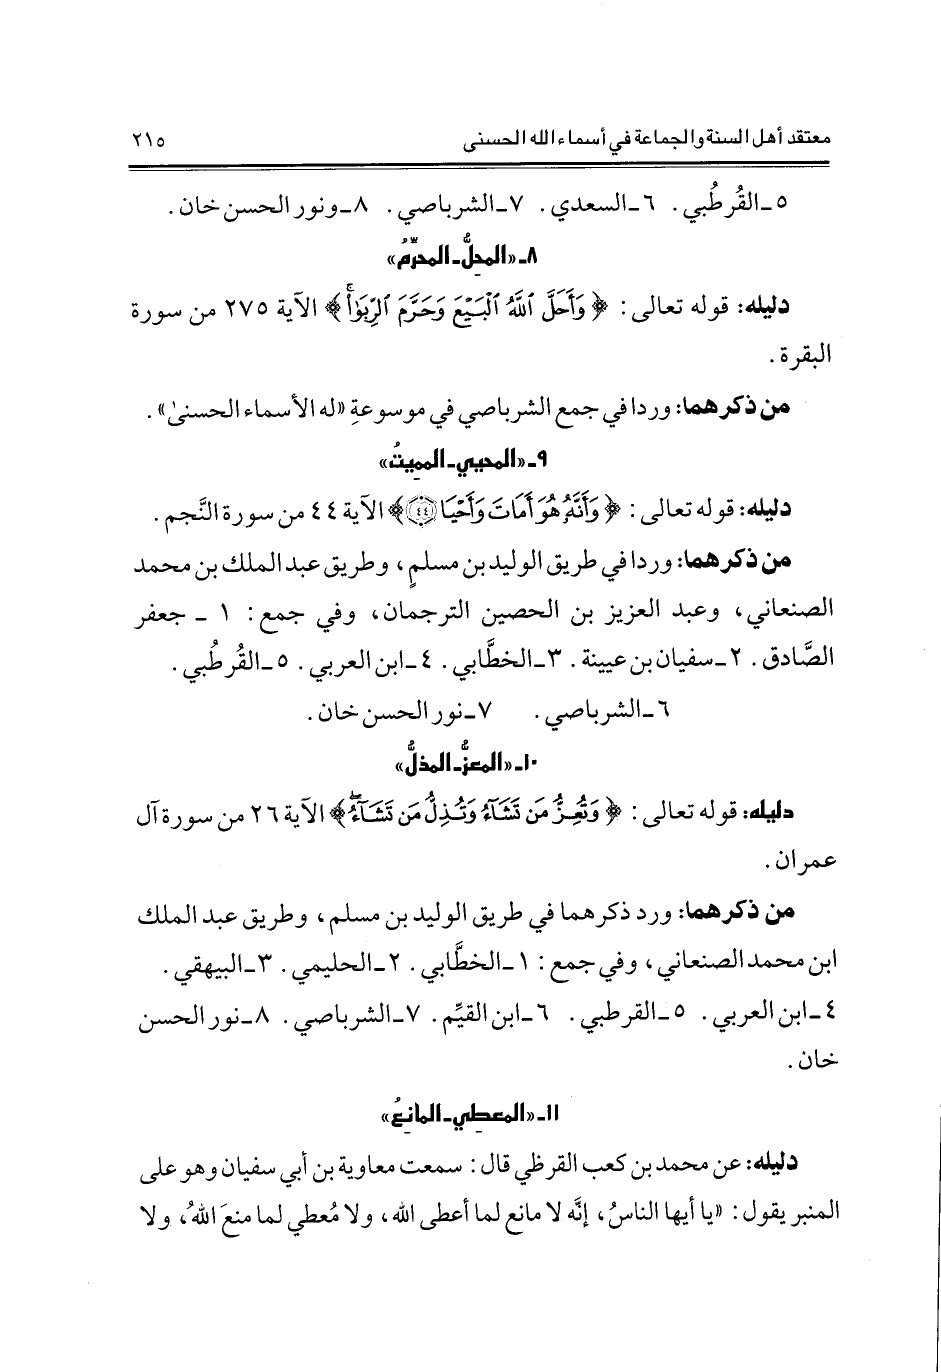 معتقد أهل السنة والجماعة في أسماء الله الحسنى ٢١٥
٥ ـ القُرطُبي . ٦ ـ السعدي . ٧ ـ الشرباصي . ٨ ـ ونور الحسن خان .
٨ـ «المحلُّ ـ المحرِّمُ»
دليله: قوله تعالى : ﴿ وَأَحَلَّ ٱللَّهُ ٱلْبَيْعَ وَحَرَّمَ ٱلرِّبَوٰاْ ۚ ﴾ الآية ٢٧٥ من سورة
البقرة .
من ذكرهما: وردا في جمع الشرباصي في موسوعةِ «له الأسماء الحسنىٰ» .
٩ـ «المحيي ـ المميتُ»
دليله: قوله تعالى : ﴿ وَأَنَّهُۥ هُوَ أَمَاتَ وَأَحْيَا ۝٤٤ ﴾ الآية ٤٤ من سورة النَّجم .
من ذكرهما: وردا في طريق الوليد بن مسلمٍ ، وطريق عبد الملك بن محمد
الصنعاني ، وعبد العزيز بن الحصين الترجمان، وفي جمع : ١ ـ جعفر
الصَّادق . ٢ ـ سفيان بن عيينة . ٣ ـ الخطَّابي . ٤ ـ ابن العربي . ٥ ـ القُرطُبي .
٦ ـ الشرباصي . ٧ ـ نور الحسن خان .
١٠ـ «المعزُّ ـ المذلُّ»
دليله: قوله تعالى : ﴿ وَتُعِزُّ مَن تَشَآءُ وَتُذِلُّ مَن تَشَآءُ ۖ ﴾ الآية ٢٦ من سورة آل
عمران .
من ذكرهما: ورد ذكرهما في طريق الوليد بن مسلم ، وطريق عبد الملك
ابن محمد الصنعاني ، وفي جمع : ١ ـ الخطَّابي . ٢ ـ الحليمي . ٣ ـ البيهقي .
٤ ـ ابن العربي . ٥ ـ القرطبي . ٦ ـ ابن القيِّم . ٧ ـ الشرباصي . ٨ ـ نور الحسن
خان .
١١ـ «المعطي ـ المانعُ»
دليله: عن محمد بن كعب القرظي قال : سمعت معاوية بن أبي سفيان وهو على
المنبر يقول : «يا أيها الناسُ ، إنَّه لا مانع لما أعطى الله ، ولا مُعطي لما منعَ اللهُ، ولا